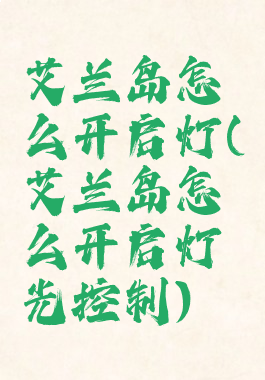 艾兰岛怎
么开启灯(
艾兰岛怎
么开启灯
光控制)